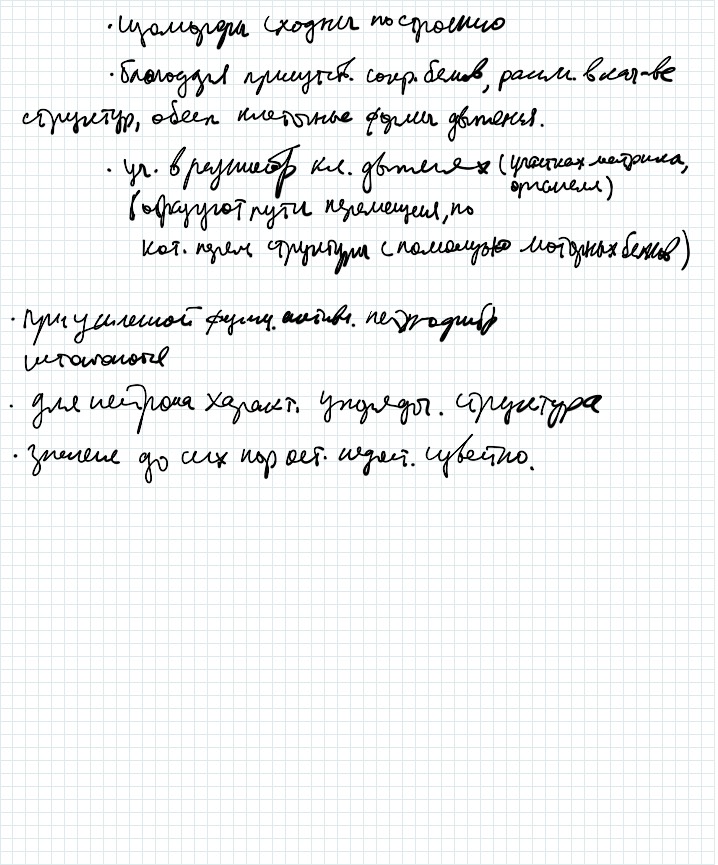 · Изоморфы сходны по строению
· благодаря присутств. сокр. белков, рассм. в кач-ве
структур, обесп клеточные формы движения.
· уч. в кл. движениях (участках матрикса,
органелл)
(образуют пути перемещения, по
кот. перем. структуры с помощью моторных белков)
· при усиленной функц. активн. нейрофибр
· для нейрона характ. упорядоч. структура
· Значение до сих пор ост. недост. известно.